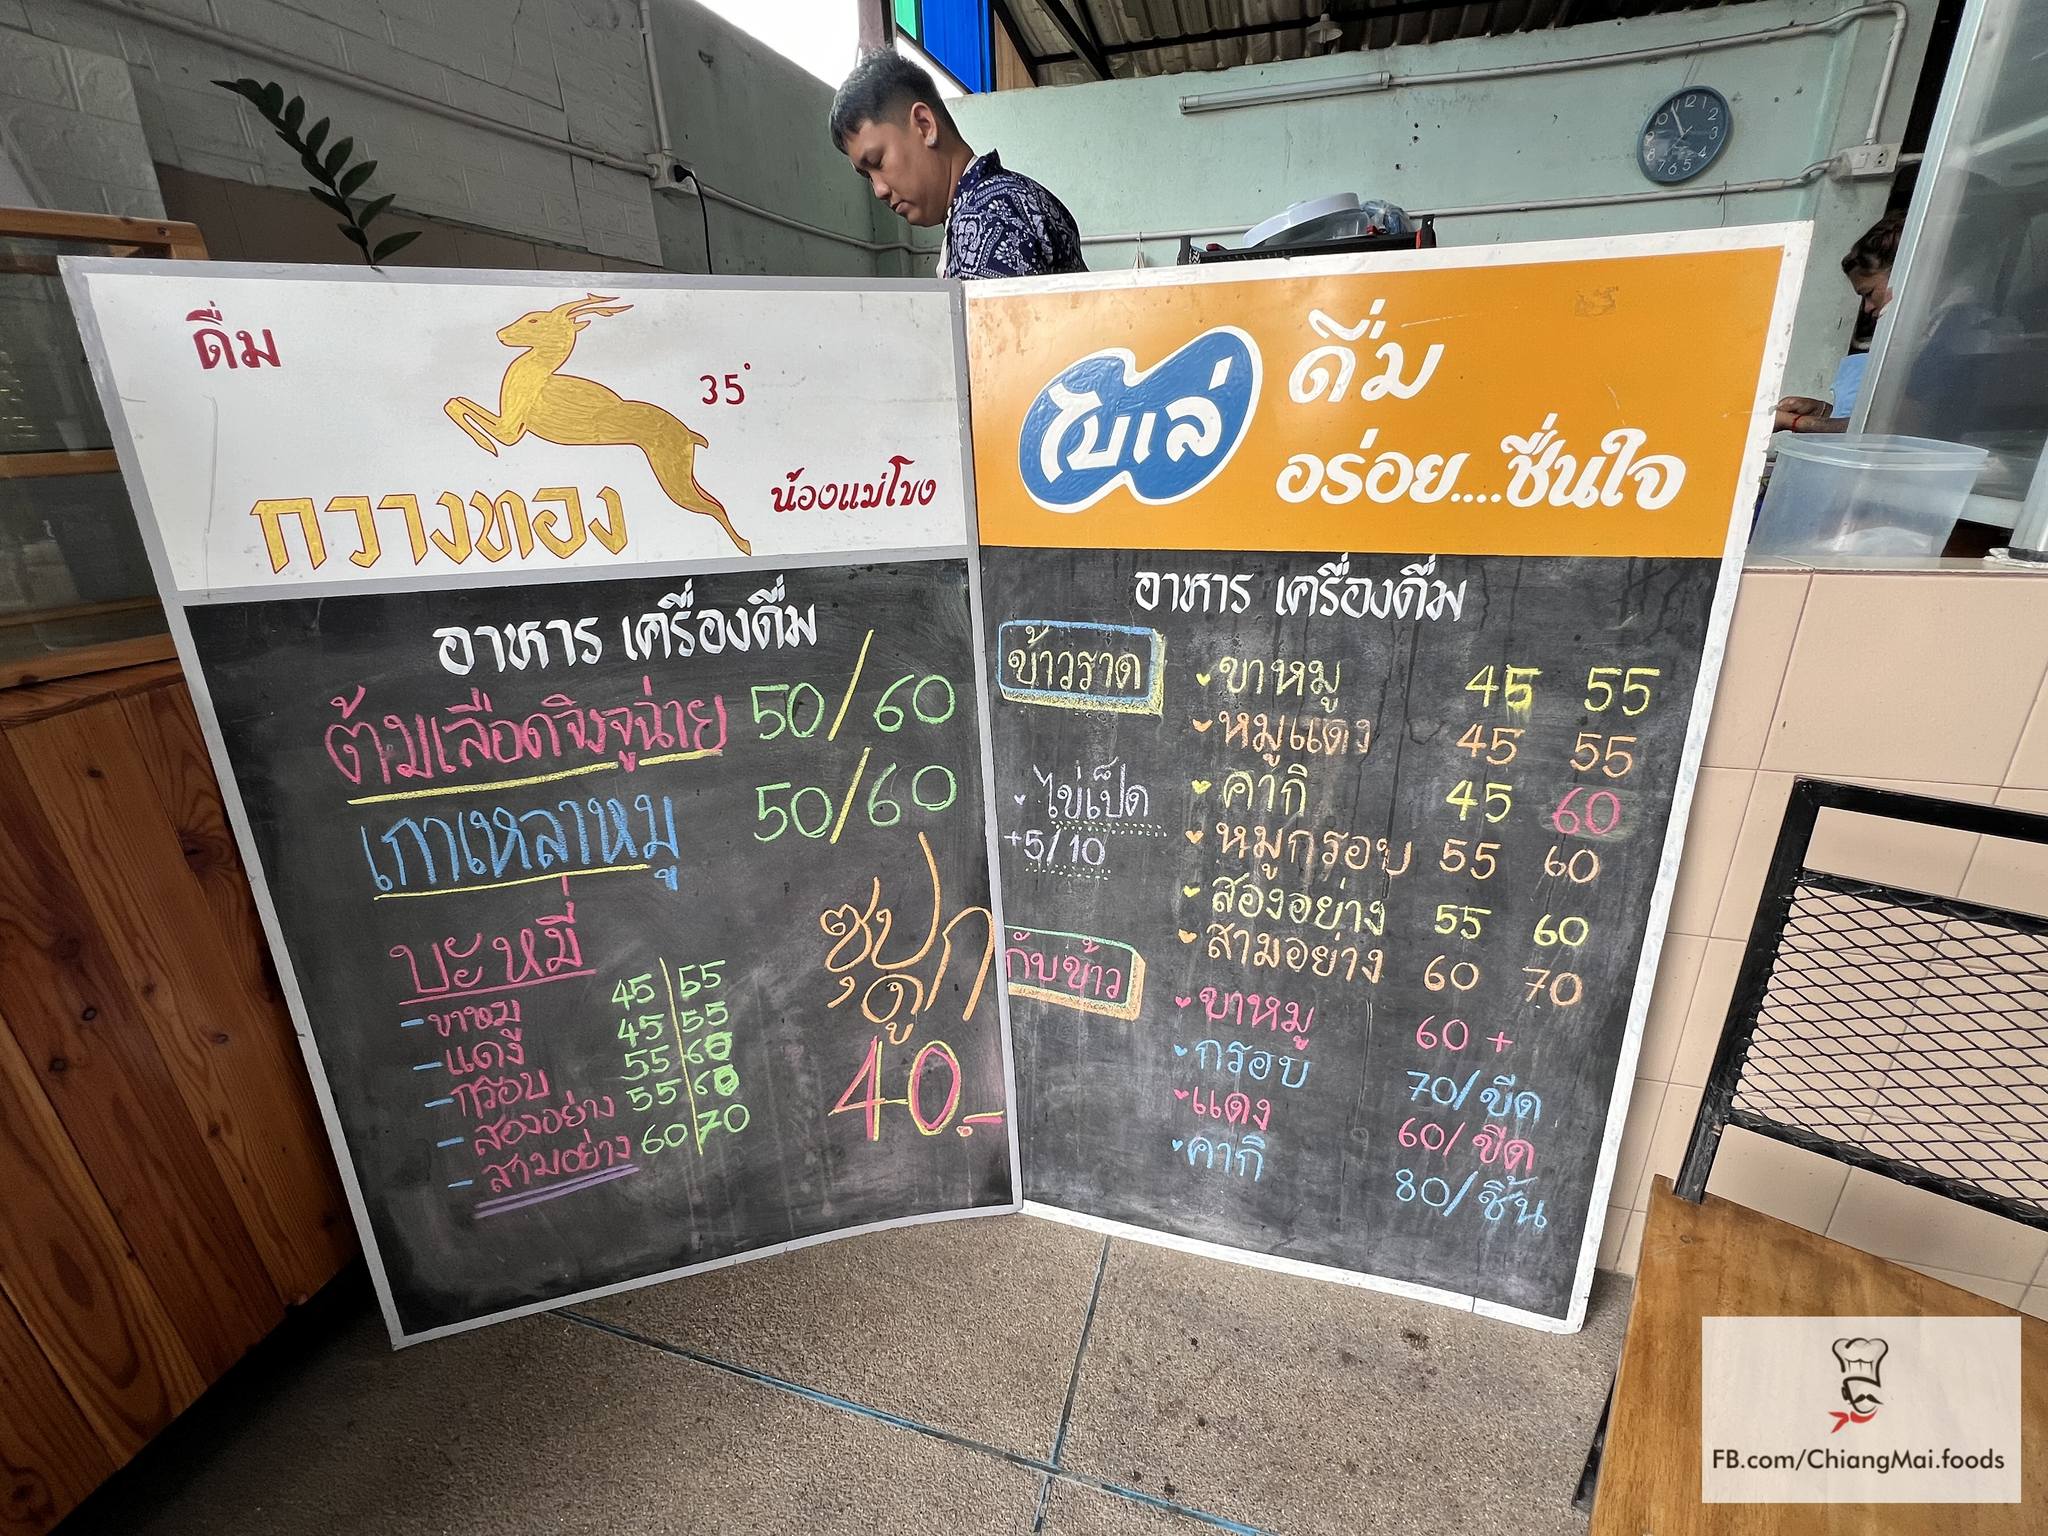 ดื่ม
35°
กวางทอง
น้องแม่โขง
อาหาร เครื่องดื่ม
ต้มเลือดจิงจูฉ่าย 50/60
เกาเหลาหมู 50/60
บะหมี่
- ขาหมู 45 55
- แดง 45 55
- กรอบ 55 60
- สองอย่าง 55 60
- สามอย่าง 60 70
ซุป
กระดูก
40.-
ไบเล่
ดื่ม
อร่อย....ชื่นใจ
อาหาร เครื่องดื่ม
ข้าวราด
ขาหมู 45 55
หมูแดง 45 55
คากิ 45 60
หมูกรอบ 55 60
สองอย่าง 55 60
สามอย่าง 60 70
ไข่เป็ด
+5/10
กับข้าว
ขาหมู 60 +
กรอบ 70/ขีด
แดง 60/ขีด
คากิ 80/ชิ้น
10 11 12 1 2 3 4 5 6 7 8 9
FB.com/ChiangMai.foods